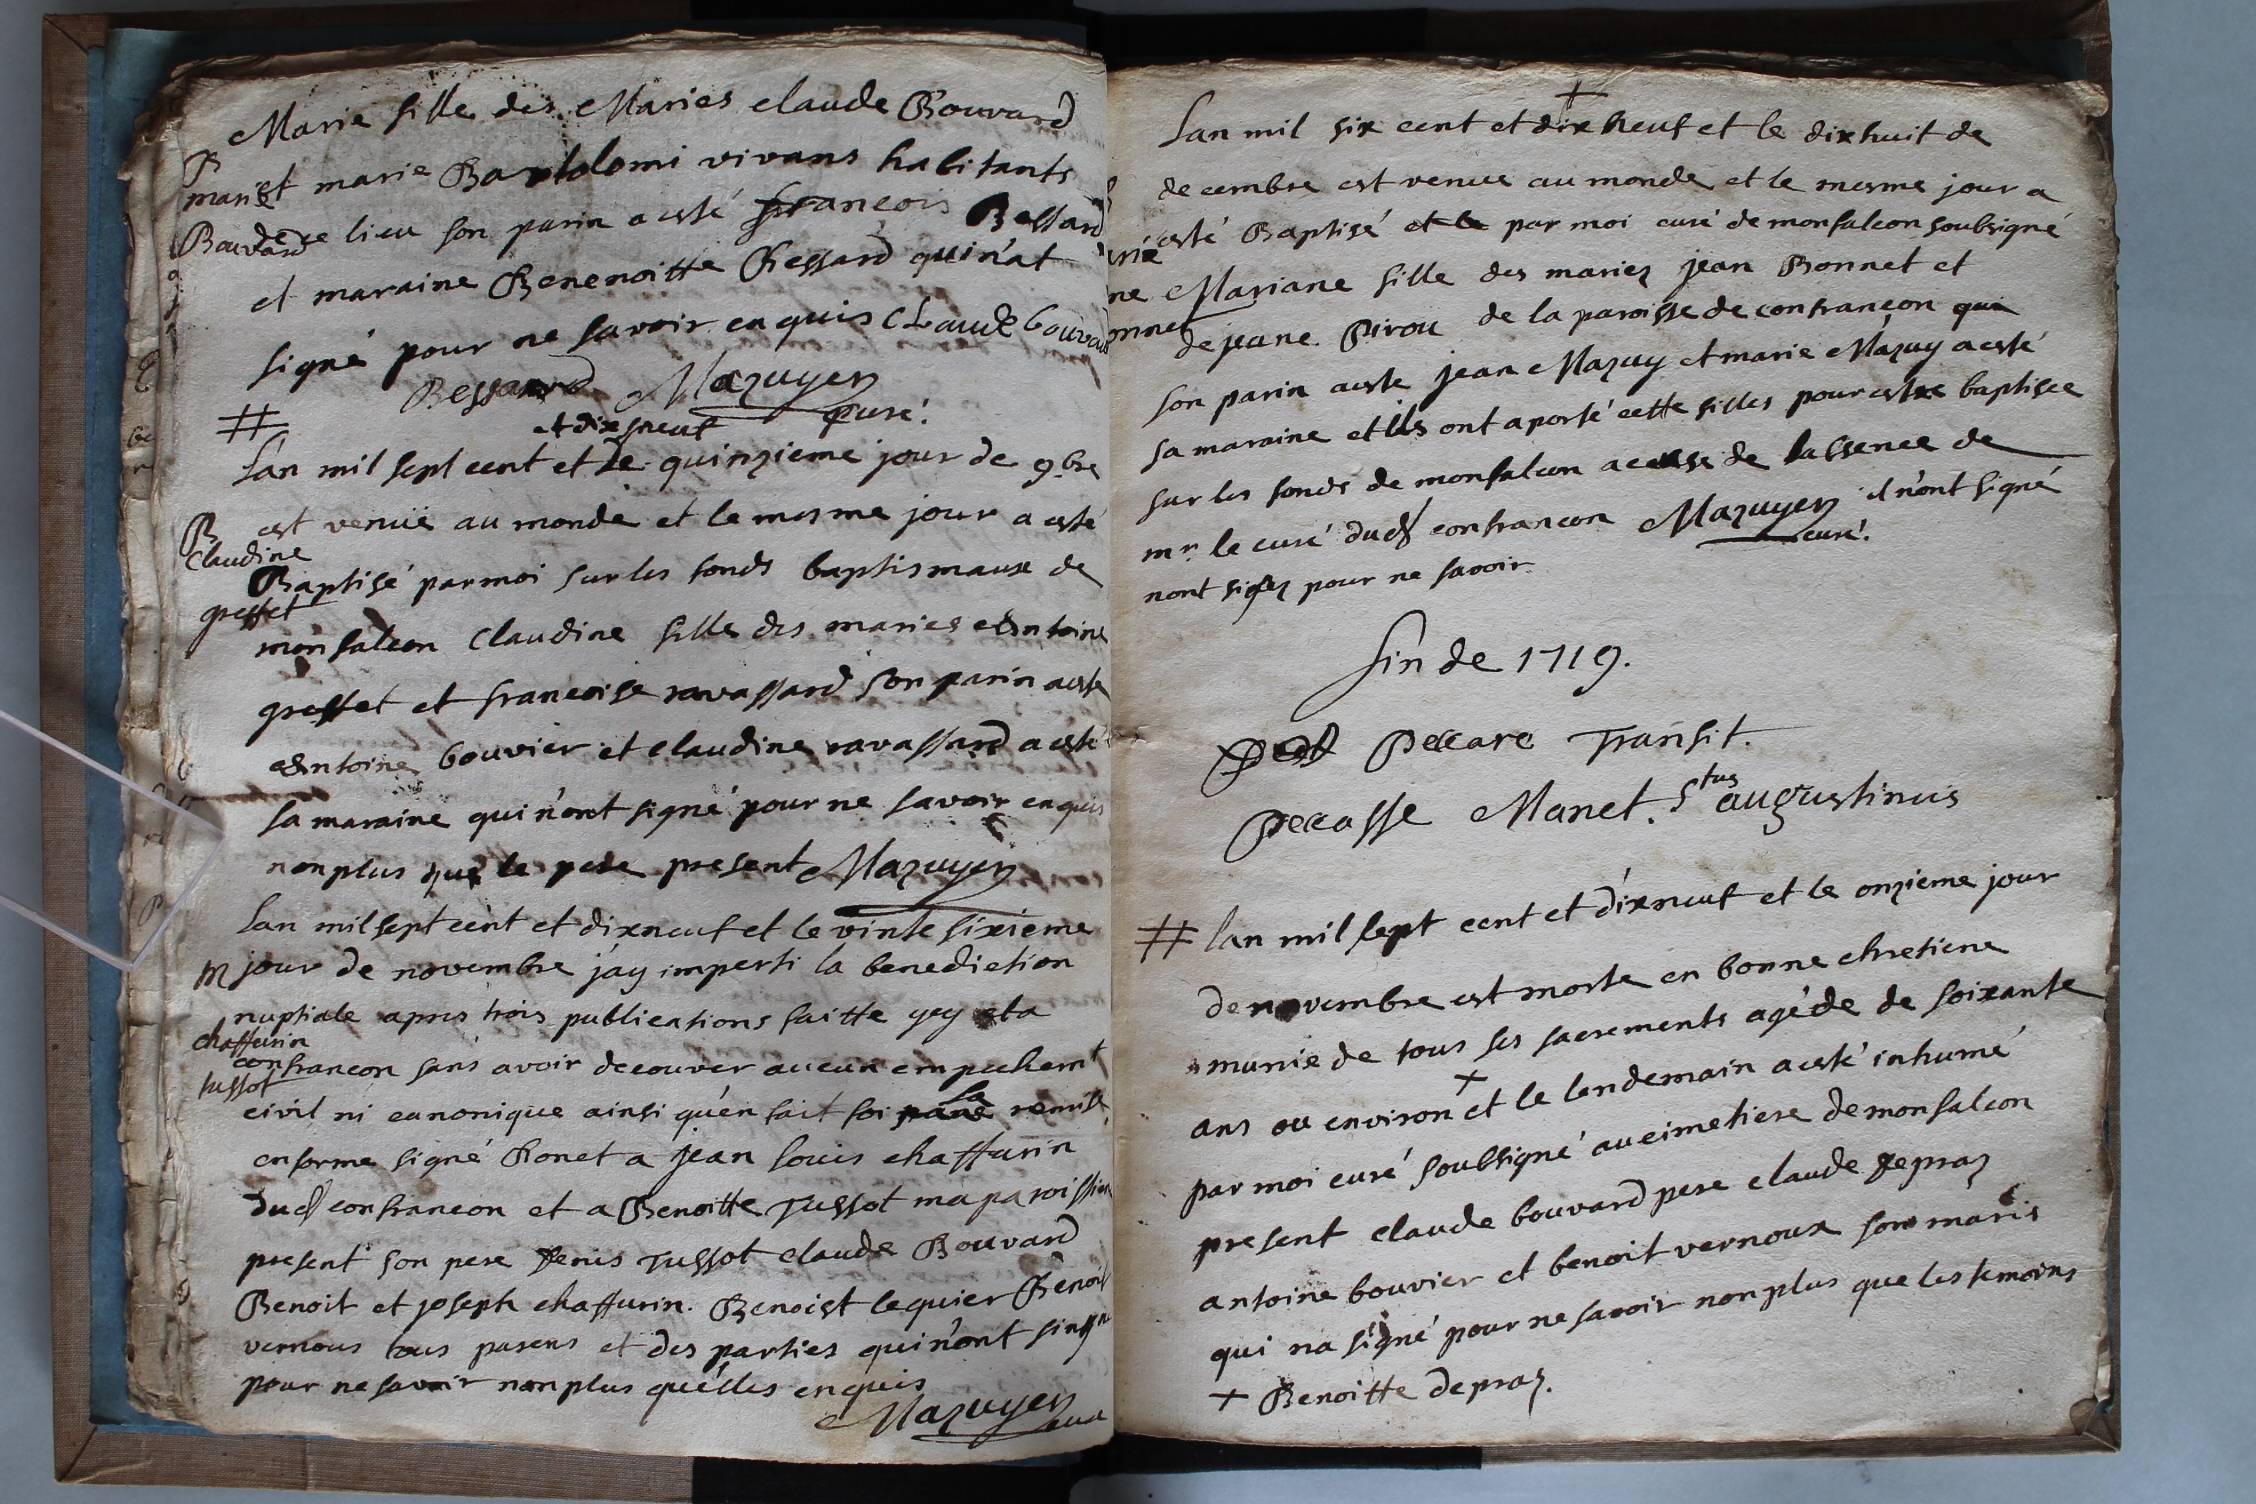 Marie fille des Maries claude Bouvard
B
marie
Bouvard
et marie Bartolomi vivans habitants
de ce lieu son parin a esté francois Bessard
et maraine Benenoitte Bessard qui n'at
signé pour ne savoir enquis Claude bouvard
Bessard Mazuyer
curé.
#
et dixneuf
Lan mil sept cent et le quinzieme jour de 9bre
B
Claudine
greffet
est venüe au monde et le mesme jour a esté
Baptisé par moi sur les fonds baptismaux de
monfalcon Claudine fille des maries Antoine
greffet et francoise ravassard son parin a este
Antoine bouvier et claudine ravassard a esté
sa maraine qui n'ont signé pour ne savoir enquis
non plus que le pere present Mazuyer
Lan mil sept cent et dixneuf et le vinte sixieme
M
jour de novembre j'ay imperti la benediction
nuptiale apres trois publications faitte ycy et a
chaffurin
tussot
confrancon sans avoir decouver aucun empechemt
civil ni canonique ainsi qu'en fait foi la remise
en forme signé Bonet a jean louis chaffurin
dud confrancon et a Benoitte Tussot ma paroissiene
present son pere Denis Tussot claude Bouvard
Benoit et joseph chaffurin. Benoist lequier Benoit
vernous tous parens et des parties qui n'ont singné
pour ne savoir non plus qu'elles enquis
Mazuyer
curé
+
Lan mil six cent et dix neuf et le dix huit de
decembre est venue au monde et le mesme jour a
esté Baptisé et le par moi curé de monfalcon soubsigné
Mariane fille des mariez jean Bonnet et
de jeane Pirou de la paroisse de confrancon qui
son parin a este jean Mazuy et marie Mazuy a esté
sa maraine et ils ont aporté cette filles pour estre baptisee
sur les fonds de monfalcon a cause de labsence de
mr le curé dud confrancon Mazuyer il n'ont signé
curé.
nont signez pour ne savoir
fin de 1719.
Peccare Transit.
Peccasse Manet. Stus augustinus
# lan mil sept cent et dixneuf et le onzieme jour
de novembre est morte en bonne chretiene
munie de tous ses sacrements agéde de soixante
ans ou environ + et le lendemain a esté inhumé
par moi curé soubsigné au cimetiere de monfalcon
present claude bouvard pere claude depraz
antoine bouvier et benoit vernoux son maris
qui na signé pour ne savoir non plus que les temoins
+ Benoitte depraz.